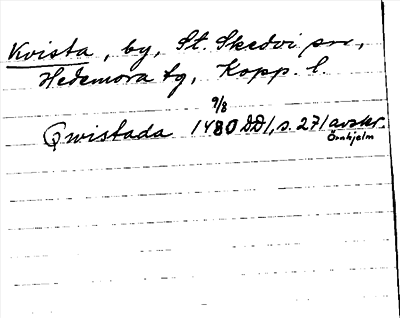 Kvista, by, St. Skedvi sn,
Hedemora tg, Kopp. l.
9/8
Qwistada 1480 DD1, s. 271 avskr.
Örnhjelm